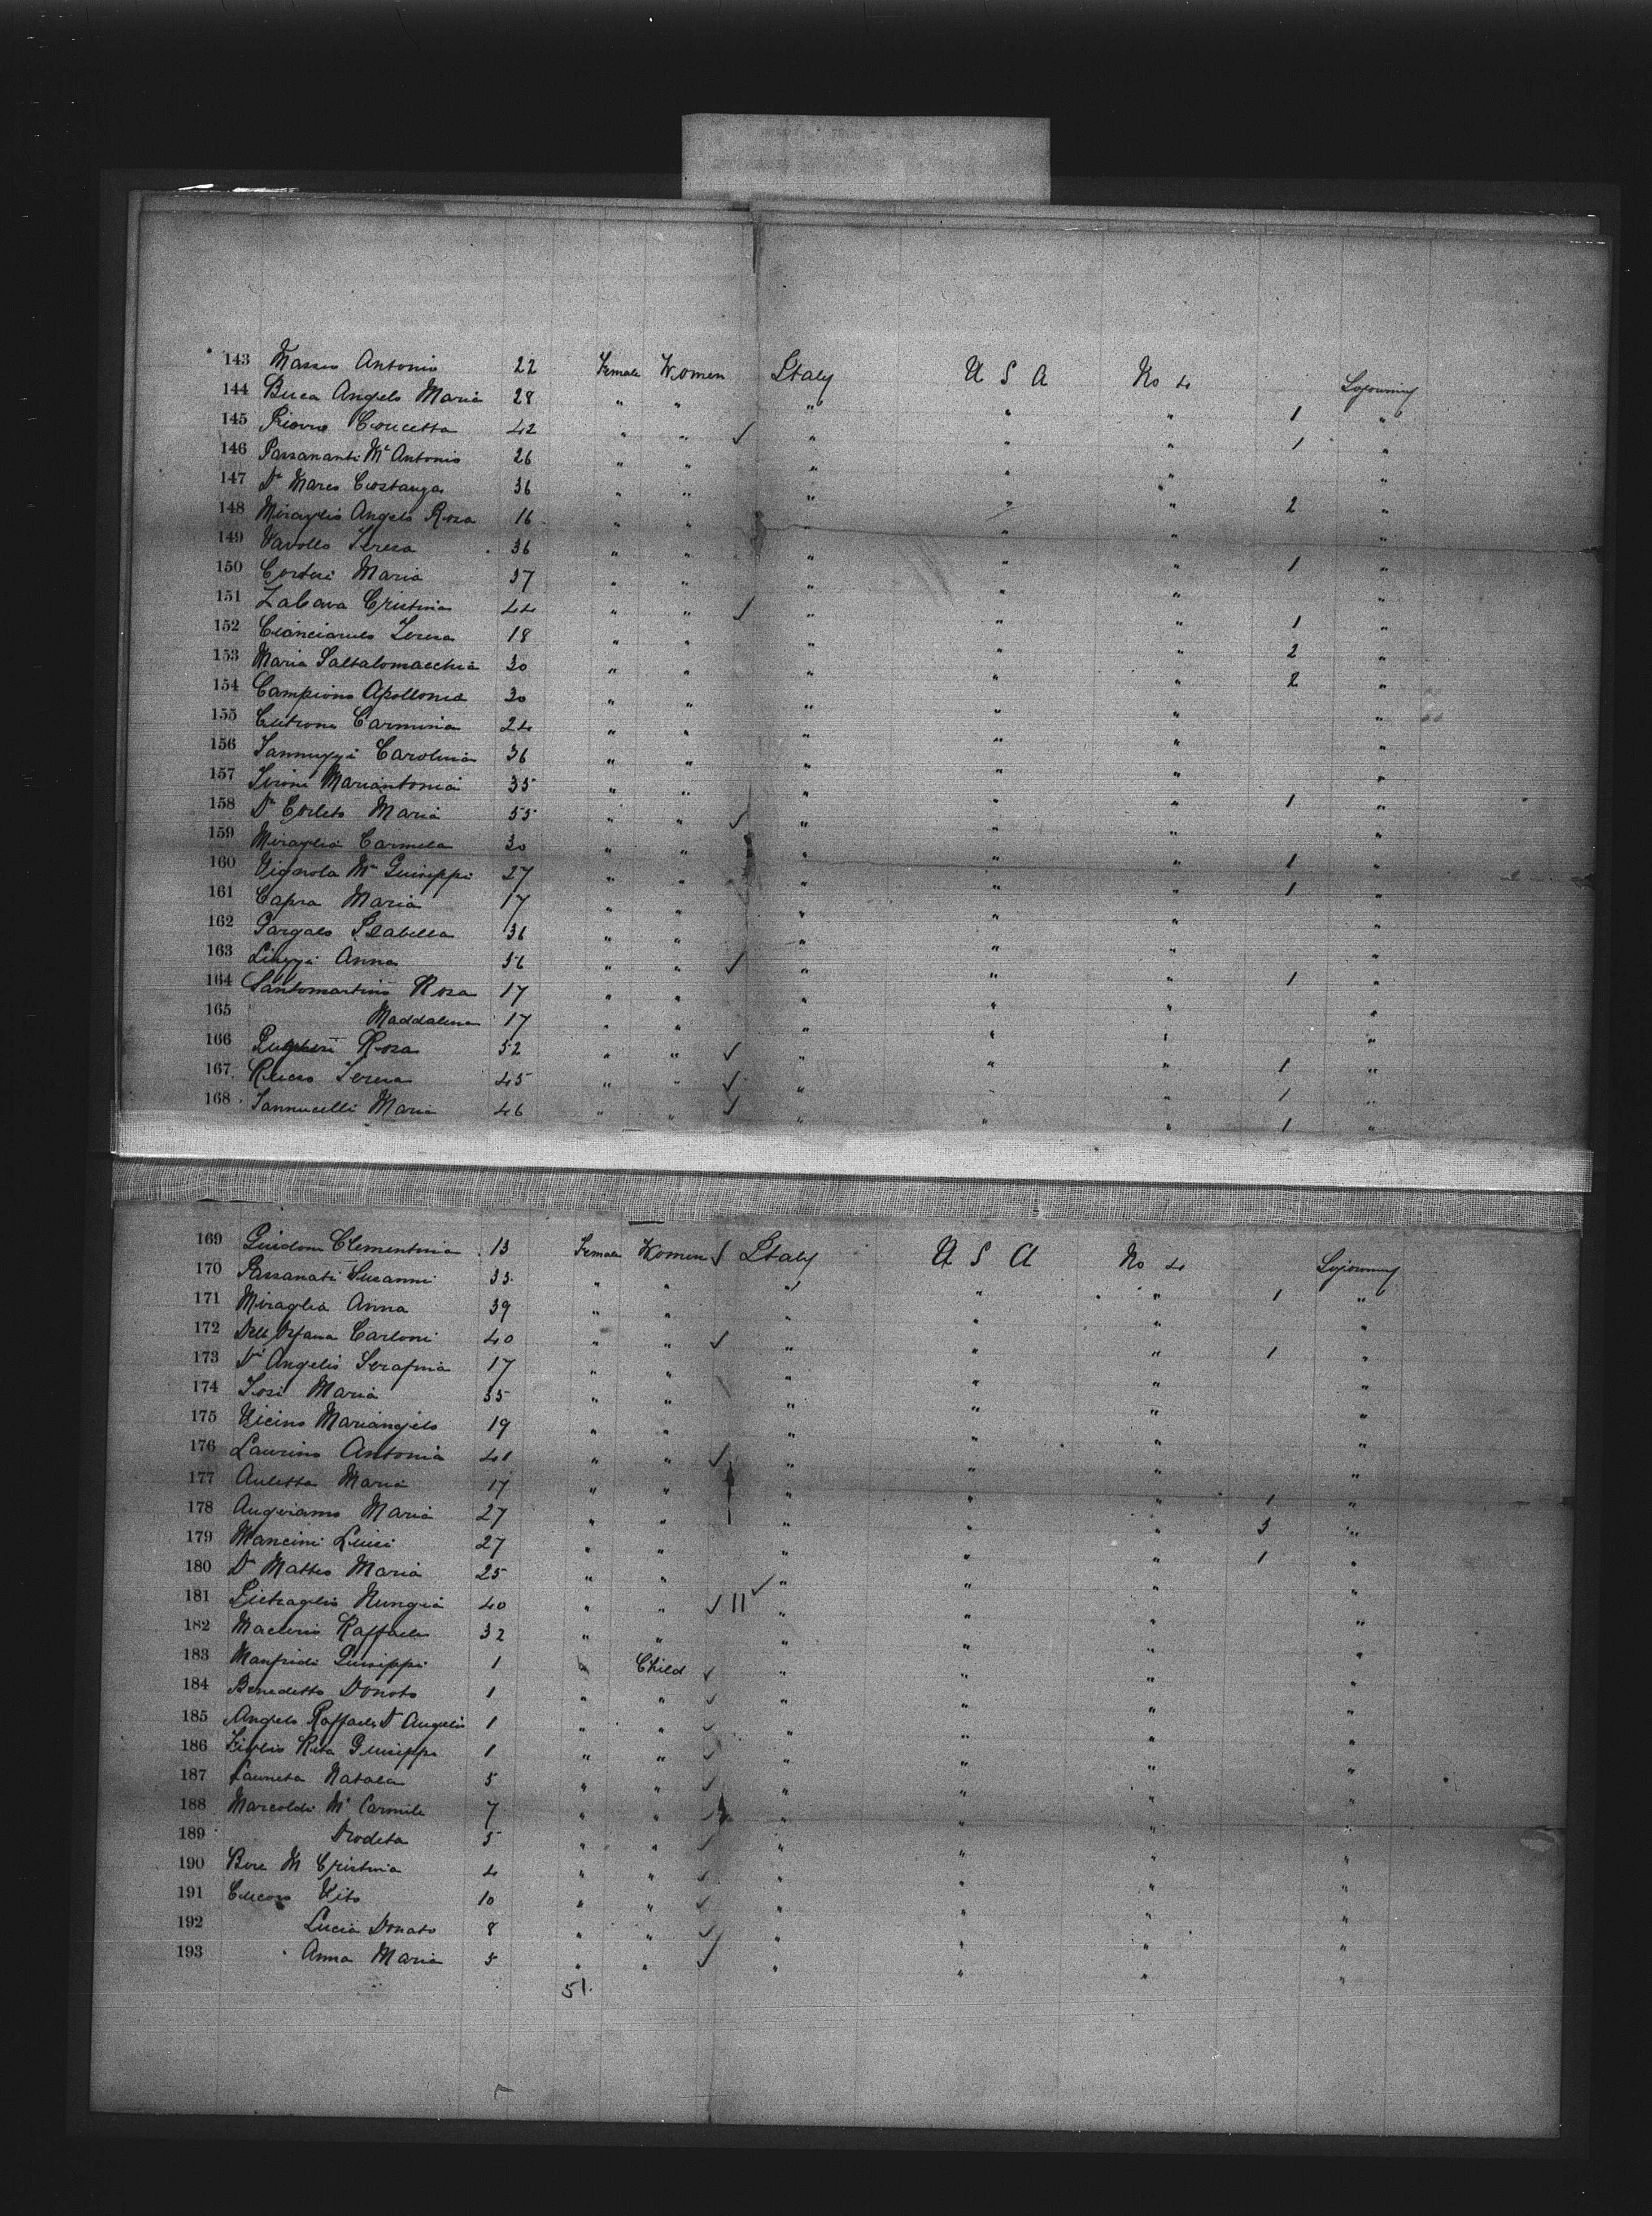 143 Masso Antonio 22 Female Women Italy U S A No 4 Sojourning
144 Buca Angelo Maria 28 " " " " " 1 "
145 Concetta 42 " " ✓ " " " 1 "
146 Passananti Mª Antonio 26 " " " " " "
147 Di Marco Costanza 36 " " " " " 2 "
148 Miraglio Angelo Rosa 16 " " " " "
149 Vavollo Teresa 36 " " " " " 1 "
150 Maria 37 " " " " " "
151 Zabava Cristina 44 " " ✓ " " " 1 "
152 Cianciarulo Teresa 18 " " " " " 2 "
153 Maria Saltalomacchia 30 " " " " " 2 "
154 Campiono Apollonia 30 " " " " " "
155 Carmina 24 " " " " " "
156 Iannuzzi Carolina 36 " " " " " "
157 Mariantonia 35 " " " " " 1 "
158 Di Corleto Maria 55 " " ✓ " " " "
159 Miraglia Carmela 30 " " " " " 1 "
160 Vignola Mª Guiseppi 27 " " " " " 1 "
161 Capra Maria 17 " " " " " "
162 Gargalo Isabella 36 " " " " " "
163 Anna 56 " " ✓ " " " 1 "
164 Santomartino Rosa 17 " " " " " "
165 Maddalena 17 " " " " " "
166 Rosa 52 " " ✓ " " " 1 "
167 Russo Teresa 45 " " ✓ " " 1 "
168 Iannucelli Maria 46 " " ✓ " " " 1 "
169 Guidone Clementina 13 Female Women ✓ Italy U S A No 4 Sojourning
170 Passanati Susanni 33 " " " " " 1 "
171 Miraglia Anna 39 " " " " " "
172 Dell Orfana Carloni 40 " " ✓ " " " 1 "
173 Di Angelis Serafina 17 " " " " " "
174 Iosi Maria 35 " " " " " "
175 Vicino Mariangelo 19 " " " " " "
176 Laurino Antonia 41 " " ✓ " " " "
177 Auletta Maria 17 " " " " " 1 "
178 Augeriamo Maria 27 " " " " " 3 "
179 Mancini Luici 27 " " " " " 1 "
180 Di Matteo Maria 25 " " ✓ " " " "
181 Pietraglio Nungia 40 " " ✓ 11 " " " "
182 Raffaele 32 " " " " " "
183 Manfridi Guiseppi 1 " Child ✓ " " " "
184 Benedetto Donato 1 " " ✓ " " " "
185 Angelo Raffaele D Angelis 1 " " ✓ " " " "
186 Rita Guiseppe 1 " " ✓ " " " "
187 Natala 5 " " ✓ " " " "
188 Marcoldi Mª Carmile 7 " " ✓ " " " "
189 5 " " ✓ " " " "
190 M Cristina 4 " " ✓ " " " "
191 Vito 10 " " ✓ " " " "
192 Lucia Donato 8 " " ✓ " " " "
193 Anna Maria 5 " " ✓ " " " "
51.